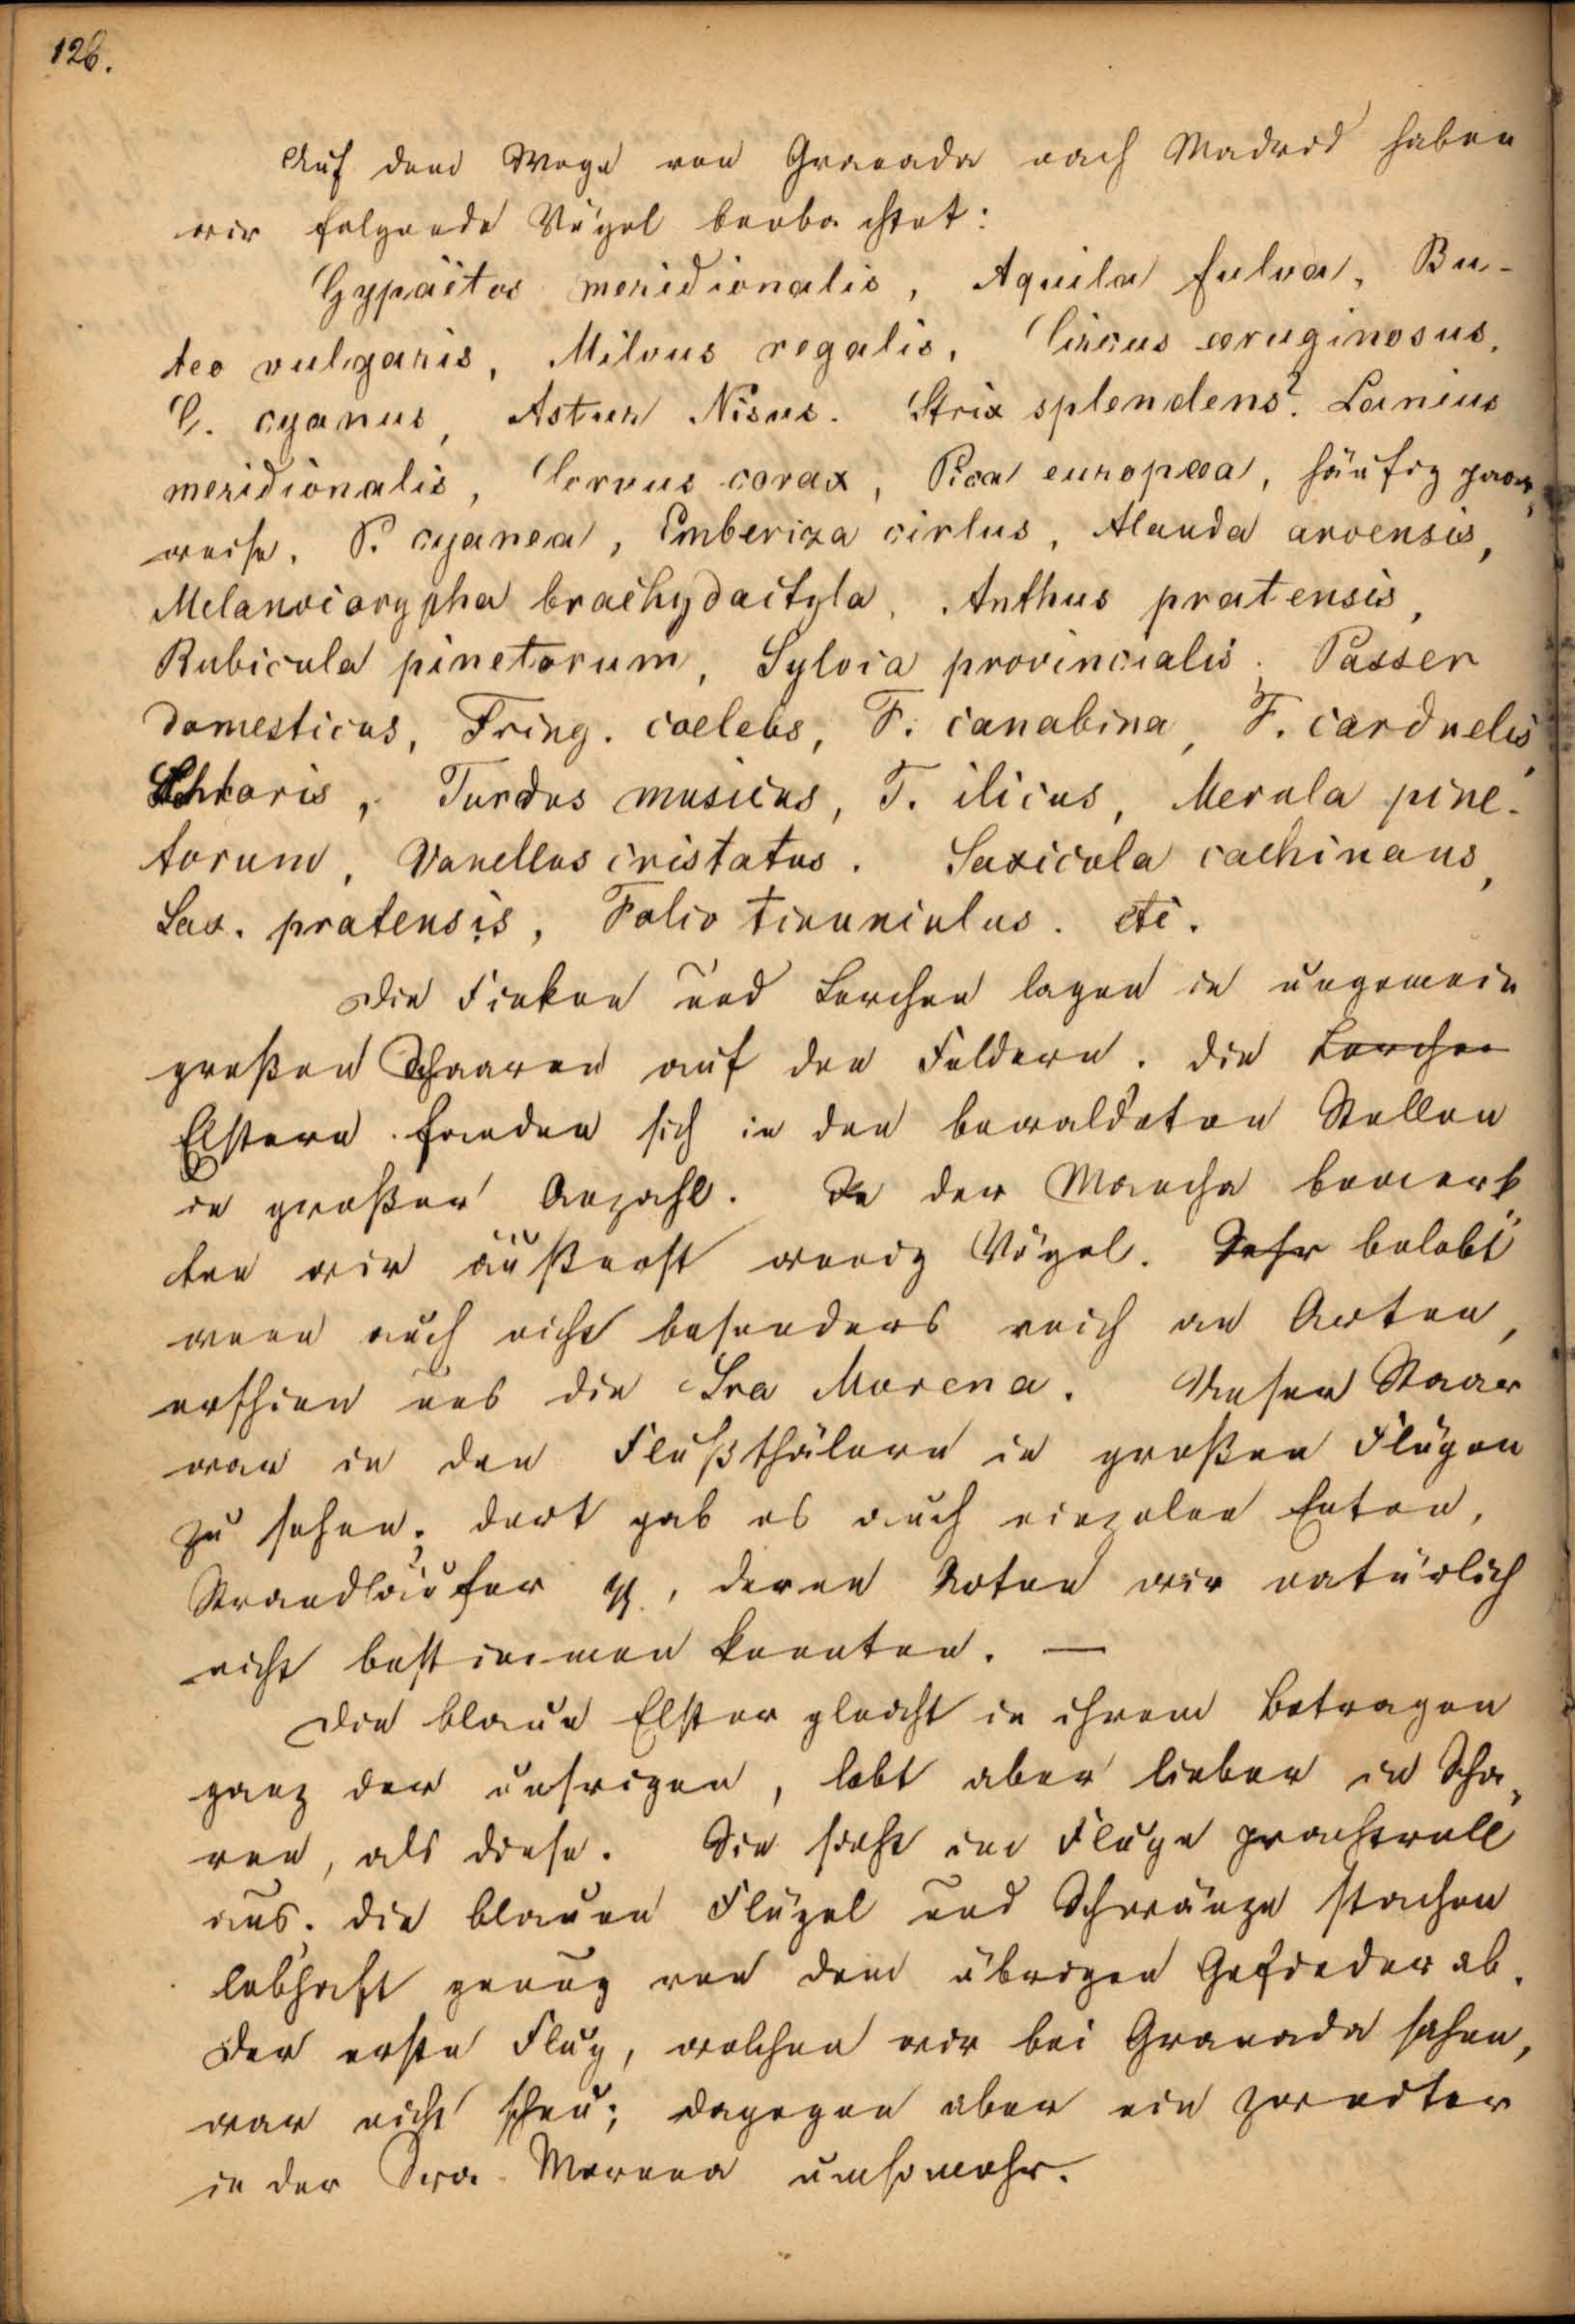 126.
Auf dem Wege von Granada nach Madrid haben
wir folgende Vögel beobachtet:
Gypaëtos meridionalis, Aquila fulva, Bu-
teo vulgaris, Milvus regalis, Circus æruginosus,
C. cyanus, Astur Nisus. Strix splendens? Lanius
meridionalis, Corvus corax, Pica europæa, häufig paar-
weise. P. cyanea, Emberiza cirlus, Alauda arvensis,
Melanocorypha brachydactyla, Anthus pratensis,
Rubicula pinetorum, Sylvia provincialis; Passer
domesticus, Fring. coelebs, F. canabina, F. carduelis,
Chloris, Turdus musicus, T. ilicus, Merula pine-
torum, Vanellus cristatus. Saxicola cachinans,
Sax. pratensis, Falco tinunculus. etc.
Die Finken und Lerchen lagen in ungemein
großen Schaaren auf den Feldern. Die Lerchen
Elstern fanden sich in den bewaldeten Stellen
in großer Anzahl. In der Mancha bemerk-
ten wir äußerst wenig Vögel. Sehr belebt
wenn auch nicht besonders reich an Arten,
erschien uns die Sra Morena. Unser Staar
war in den Flußthälern in großen Flügen
zu sehen; dort gab es auch einzelne Enten,
Strandläufer p., deren Arten wir natürlich
nicht bestimmen konnten. —
Die blaue Elster gleicht in ihrem Betragen
ganz der unsrigen, lebt aber lieber in Scha-
ren, als diese. Sie sieht im Fluge prachtvoll
aus. die blauen Flügel und Schwänze stachen
lebhaft genug von dem übrigen Gefieder ab.
Der erste Flug, welchen wir bei Granada sahen,
war nicht scheu; dagegen aber ein zweiter
in der Sra. Morena umsomehr.